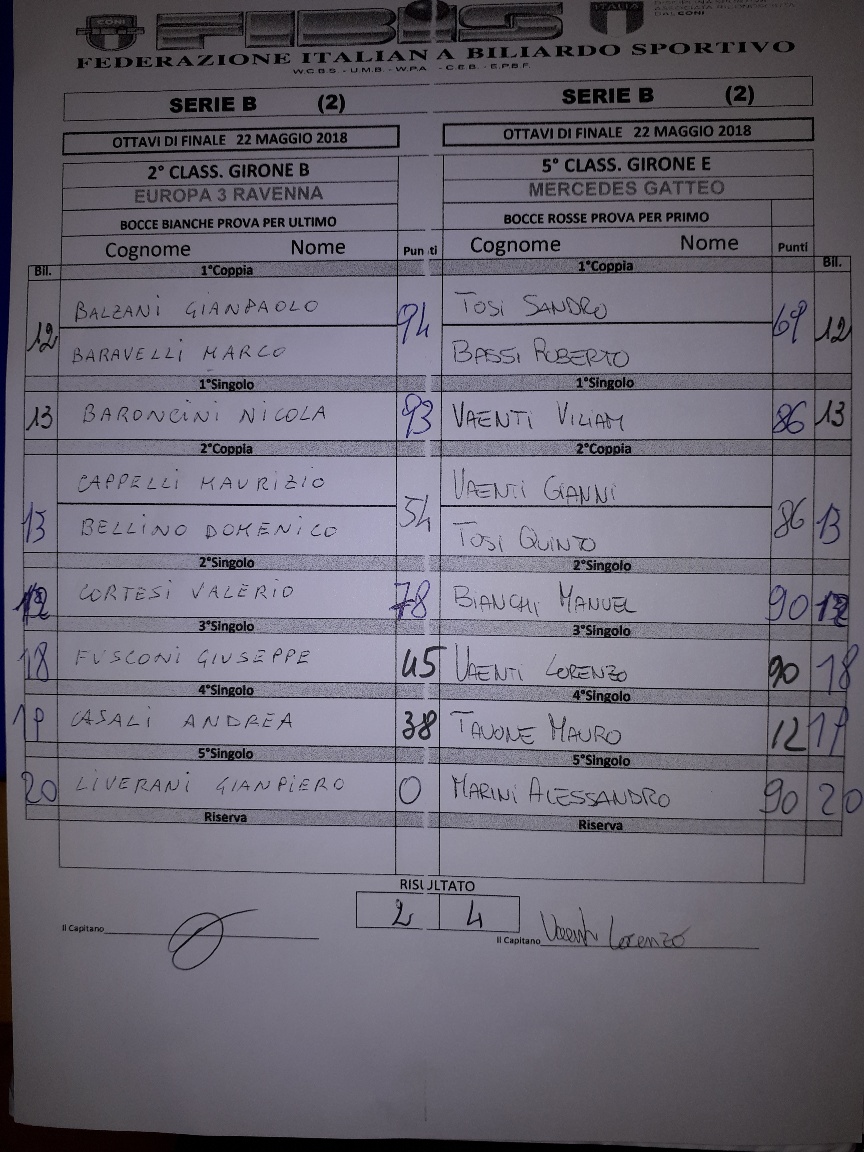 CONI
FIBIS
ITALIA
DAL CONI
FEDERAZIONE ITALIANA BILIARDO SPORTIVO
W.C.B.S. - U.M.B. - W.P.A. - C.E.B. - E.P.B.F.
SERIE B (2) SERIE B (2)
OTTAVI DI FINALE 22 MAGGIO 2018 OTTAVI DI FINALE 22 MAGGIO 2018
2° CLASS. GIRONE B 5° CLASS. GIRONE E
EUROPA 3 RAVENNA MERCEDES GATTEO
BOCCE BIANCHE PROVA PER ULTIMO BOCCE ROSSE PROVA PER PRIMO
Cognome Nome Punti Cognome Nome Punti
Bil. 1°Coppia 1°Coppia Bil.
BALZANI GIANPAOLO TOSI SANDRO
12 94 69 12
BARAVELLI MARCO BASSI ROBERTO
1°Singolo 1°Singolo
13 BARONCINI NICOLA 93 VAENTI VILIAM 86 13
2°Coppia 2°Coppia
CAPPELLI MAURIZIO VAENTI GIANNI
13 54 86 13
BELLINO DOMENICO TOSI QUINTO
2°Singolo 2°Singolo
12 CORTESI VALERIO 78 BIANCHI MANUEL 90 12
3°Singolo 3°Singolo
18 FUSCONI GIUSEPPE 45 VAENTI LORENZO 90 18
4°Singolo 4°Singolo
19 CASALI ANDREA 38 TAVONE MAURO 12 19
5°Singolo 5°Singolo
20 LIVERANI GIANPIERO 0 MARINI ALESSANDRO 90 20
Riserva Riserva
RISULTATO
2 4
Il Capitano Il Capitano Vaenti Lorenzo